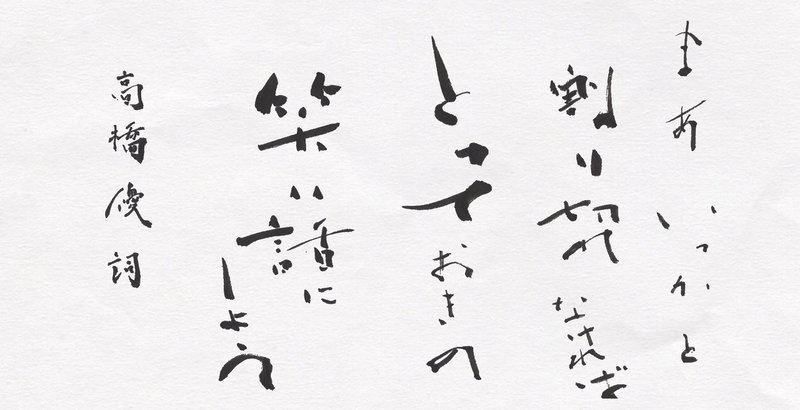 まあ いっかと
割り切れなければ
とっておきの
笑い話に
しよう
高橋優 詞